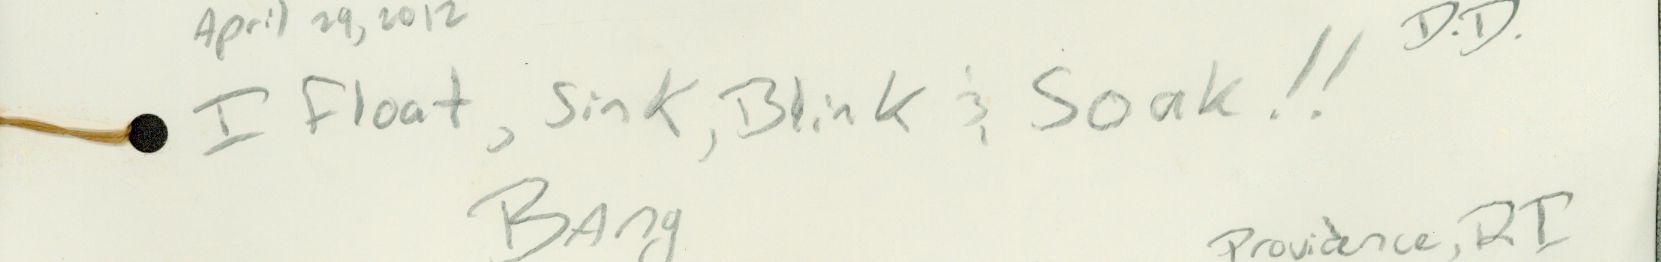 April 29, 2012
D.D.
I Float, Sink, Blink & Soak!!
BAng
Providence, RI